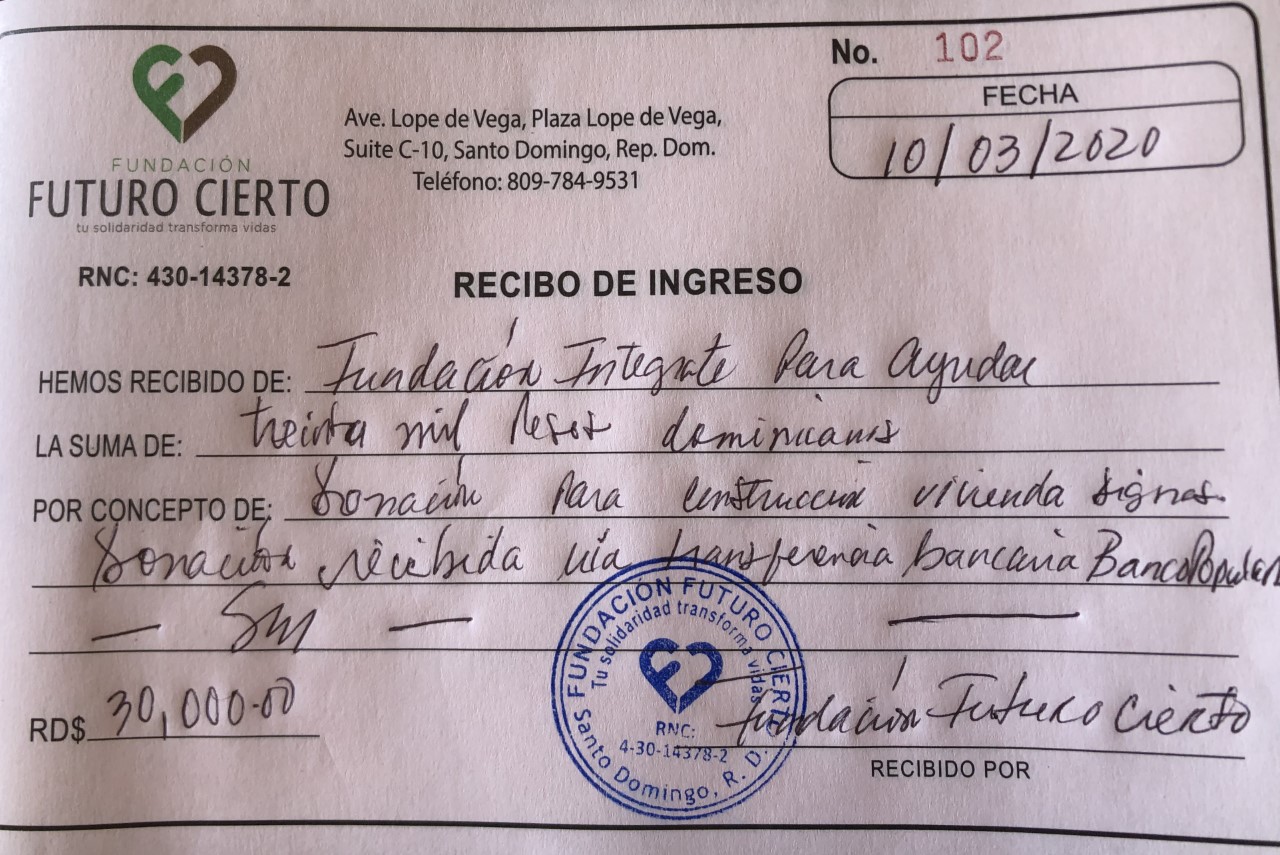 No. 102
FECHA
10/03/2020
Ave. Lope de Vega, Plaza Lope de Vega,
Suite C-10, Santo Domingo, Rep. Dom.
Teléfono: 809-784-9531
FUNDACIÓN
FUTURO CIERTO
tu solidaridad transforma vidas
RNC: 430-14378-2
RECIBO DE INGRESO
HEMOS RECIBIDO DE: Fundación Integrate Para Ayudar
LA SUMA DE: treinta mil Pesos dominicanos
POR CONCEPTO DE: Donación Para construcción vivienda dignas.
Donación recibida vía transferencia bancaria Banco Popular
RD$ 30,000.00
FUNDACIÓN FUTURO CIERTO
Tu solidaridad transforma vidas
RNC:
4-30-14378-2
Santo Domingo, R. D.
Fundación Futuro Cierto
RECIBIDO POR